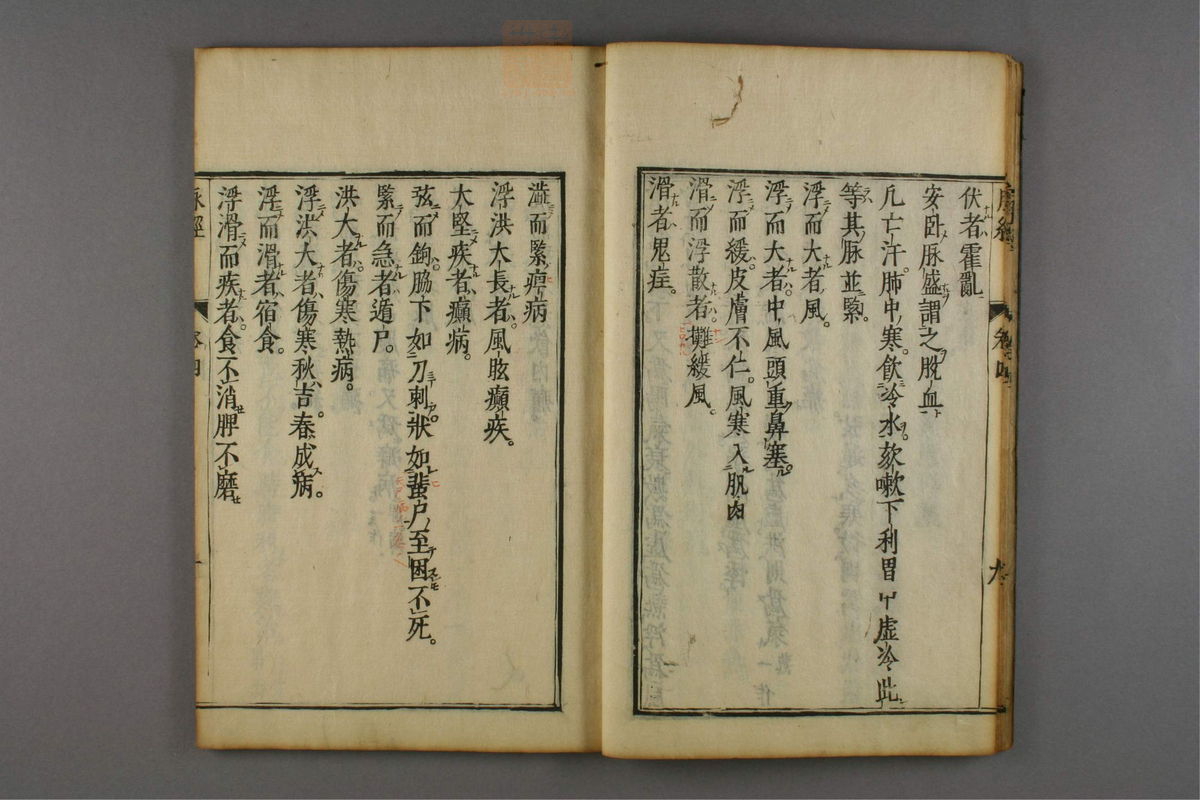 伏者霍亂
安卧脉盛謂之脫血
凡亡汗肺中寒飲冷水欬嗽下利胃中虛冷此
等其脉並緊
浮而大者風
浮而大者中風頭重鼻塞
浮而緩皮膚不仁風寒入肌肉
滑而浮散者攤緩風
滑者鬼疰
澁而緊痺病
浮洪大長者風眩癲疾
大堅疾者癲病
弦而鉤脇下如刀刺狀如蜚尸至困不死
緊而急者遁尸
洪大者傷寒熱病
浮洪大者傷寒秋吉春成病
浮而滑者宿食
浮滑而疾者食不消脾不磨
脉經 卷四